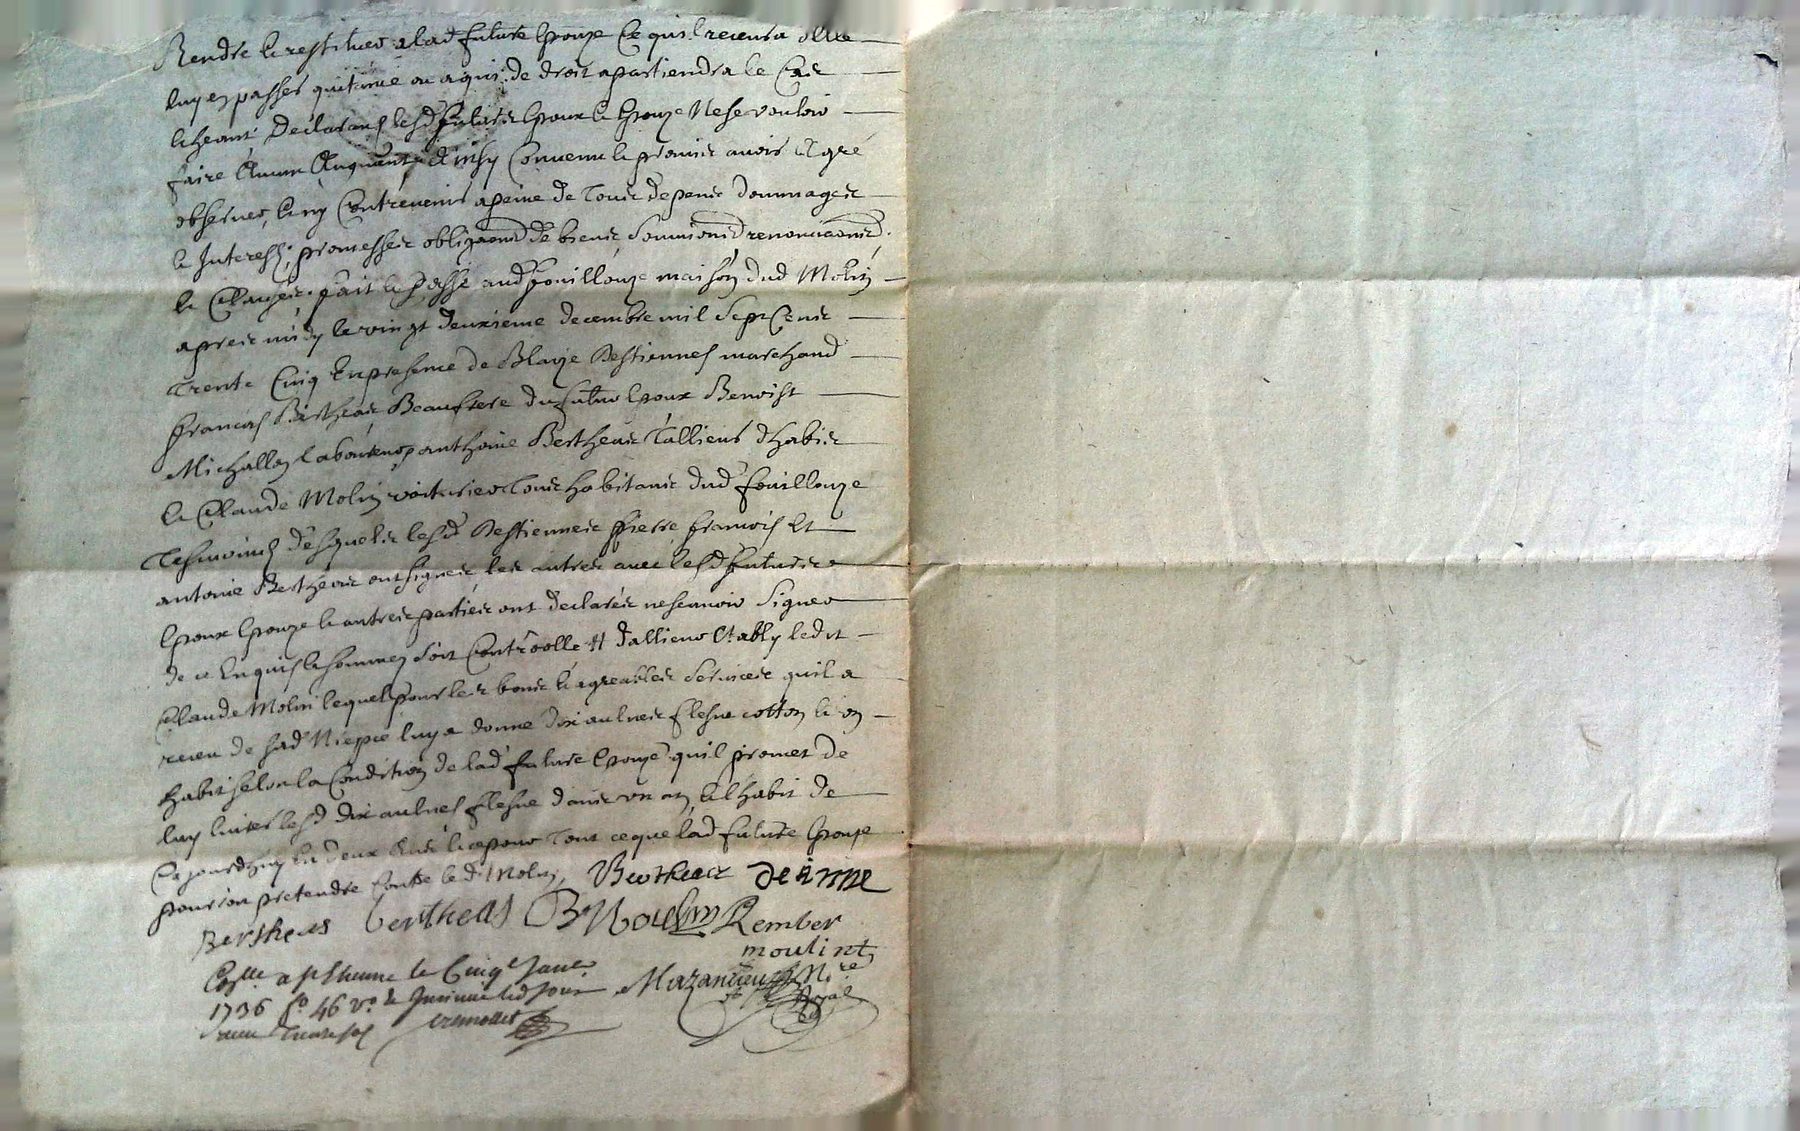 Rendre et restituer a lad future Epouze ce quil recevra
luy en passer quitance ou a qui de droit apartiendra le Cas
Echeant, Declarans lesd futurs Epoux et Epouze Ne se vouloir
faire Aucun Augment, Ainsy Convenu et promis avoir a gré
observer, et ny Contrevenir a peine de Tous depens dommages
et Interests, promesses obligaons de biens, soumissions renonciaons
et Clauzes. fait et passé aud fouillouze maison dud Molin
apres midy le vingt deuxieme decembre mil Sept Cens
Trente Cinq En presence de Blaize Bestiennes marchand
francois Bertheas Beaufrere du futur Epoux Benoist
Michallon laboureur anthoine Bertheas Tallieur dhabis
et Claude Molin voiturier tous habitans dud fouillouze
Tesmoins desquels lesd Bestiennes Pierre francois Et
antoine Bertheas ont signes, les autres avec lesd futurs
Epoux Epouze et autres parties ont declarés ne scavoir signer
de ce Enquis et sommes soit Controollé Et dallieur Estably ledit
Claude Molin lequel pour les bons et agreables services quil a
receu de sad Niepce luy a donne dix aulnes flesne cotton et un
habit selon la Condition de lad future Epouze quil promet de
luy livrer lesd dix aulnes flesne dans un an, et lhabit de
Ce jourdhuy En deux Ans et ce pour Tout ce que lad future Epouze
pourroit pretendre contre led Molin, Bertheas
Bertheas bertheas Rember
moulint
Coll a St Etienne le Cinq Janer
1736 fo 46 vo Mazancieu Nre
Royal